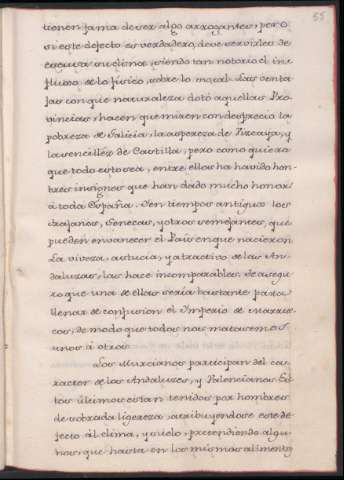 55
tienen fama de ser algo arrogantes, pero
si este defecto es verdadero, deve servirles de
escusa su clima, siendo tan notorio el in
flujo de lo fisico, sobre lo moral. Las venta
jas con que naturaleza dotó aquellas Pro
vincias, hacen que miren con desprecio la
pobreza de Galicia, la aspereza de Vizcaya, y
la sencilléz de Castilla, pero como quiera
que todo esto sea, entre ellos ha havido hom
bres insignes que han dado mucho honor
á toda España. Y en tiempos antiguos los
Trajanos, Senecas, y otros semejantes, que
pueden envanecer el Pais en que nacieron
La viveza, astucia, y atractivo de las An
daluzas, las hace incomparables. Te asegu
ro que una de ellas seria bastante para
llenar de confusion el Imperio de Marrue
cos, de modo que todos nos matasemos
unos á otros.
Los Murcianos participan del ca
racter de los Andaluces, y Valencianos. Es
tos últimos estan tenidos por hombres
de sobrada ligereza, atribuyendose este de
fecto ál clima, y suelo, pretendiendo algu
nos, que hasta en los mismos alimentos